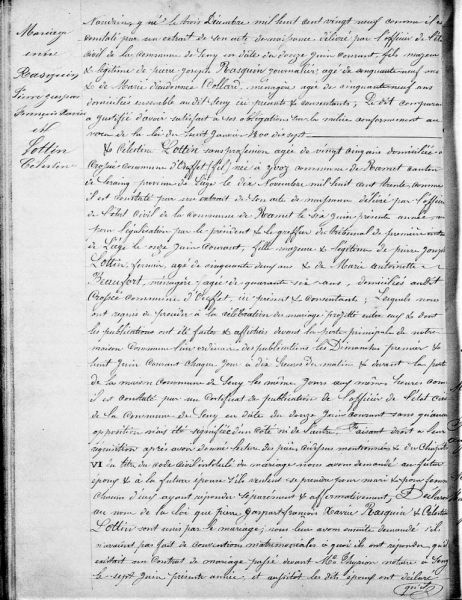 Mariage
entre
Rasquin
Pierre gaspar
François Xavier
et
Lottin
Célestine
le trois Décembre mil huit cent vingt neuf comme il est
constaté par un extrait de son acte de naissance délivré par l'officier de l'état
civil de la commune de en date du douze Juin courant, fils majeur
& légitime de pierre Joseph Rasquin journalier, agé de cinquante
& de Marie Collard, ménagère, agée de cinquante neuf ans
domiciliés ensemble audit ici présents & consentants; Le dit comparant
a justifié d'avoir satisfait à ses obligations sur la milice conformément au
voeu de la loi du huit Janvier 1800 dix sept
& Célestine Lottin sans profession, agée de vingt ans domiciliée à
commune d' née à Yvoz commune de Ramet canton
de Seraing province de Liège le dix Novembre mil huit cent trente comme
il est constaté par un extrait de son acte de naissance délivré par l'officier
de l'état Civil de la commune de Ramet le six Juin présente année
pour légalisation par le président & le greffier du tribunal de première instance
de Liège le onze Juin courant, fille majeure & légitime de pierre Joseph
Lottin, fermier, agé de cinquante deux ans & de Marie Antoinette
Beaufort, ménagère, agée de quarante six ans, domiciliés audit
commune d' ici présents & consentants; Lesquels nous
ont requis de procéder à la célébration du mariage projetté entre eux & dont
les publications ont été faites & affichées devant la porte principale de notre
maison Commune les Dimanches premier &
huit Juin courant chaque jour à dix heures du matin & devant la porte
de la maison commune de les mêmes jours aux mêmes heures comme
il est constaté par un certificat de publication de l'officier de l'état civil
de la Commune de en date du douze Juin courant sans qu'aucune
opposition n'ait été signifiée d'un côté ni de l'autre. Faisant droit à leur
réquisition après avoir donné lecture des pièces mentionnées & du Chapitre
VI du titre du code civil intitulé du mariage nous avons demandé au futur
époux & à la future épouse s'ils veulent se prendre pour mari & pour femme
Chacun d'eux ayant répondu séparément & affirmativement, Déclarons
au nom de la loi que pierre gaspar françois Xavier Rasquin & Célestine
Lottin sont unis par le mariage; nous leur avons ensuite demandé s'ils
n'avaient pas fait de conventions matrimoniales à quoi ils ont répondu qu'il
existait un Contrat de mariage passé devant Me notaire à
le sept Juin présente année et aussitôt les dits époux ont déclaré
qu'il